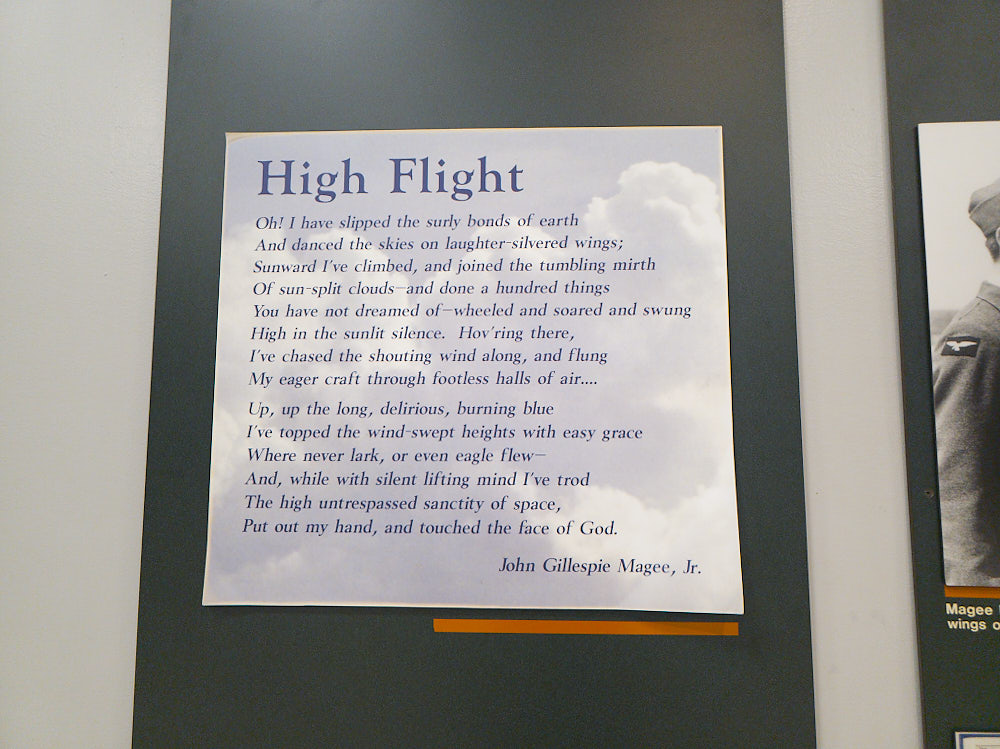 High Flight
Oh! I have slipped the surly bonds of earth
And danced the skies on laughter-silvered wings;
Sunward I've climbed, and joined the tumbling mirth
Of sun-split clouds—and done a hundred things
You have not dreamed of—wheeled and soared and swung
High in the sunlit silence. Hov'ring there,
I've chased the shouting wind along, and flung
My eager craft through footless halls of air....
Up, up the long, delirious, burning blue
I've topped the wind-swept heights with easy grace
Where never lark, or even eagle flew—
And, while with silent lifting mind I've trod
The high untrespassed sanctity of space,
Put out my hand, and touched the face of God.
John Gillespie Magee, Jr.
Magee
wings